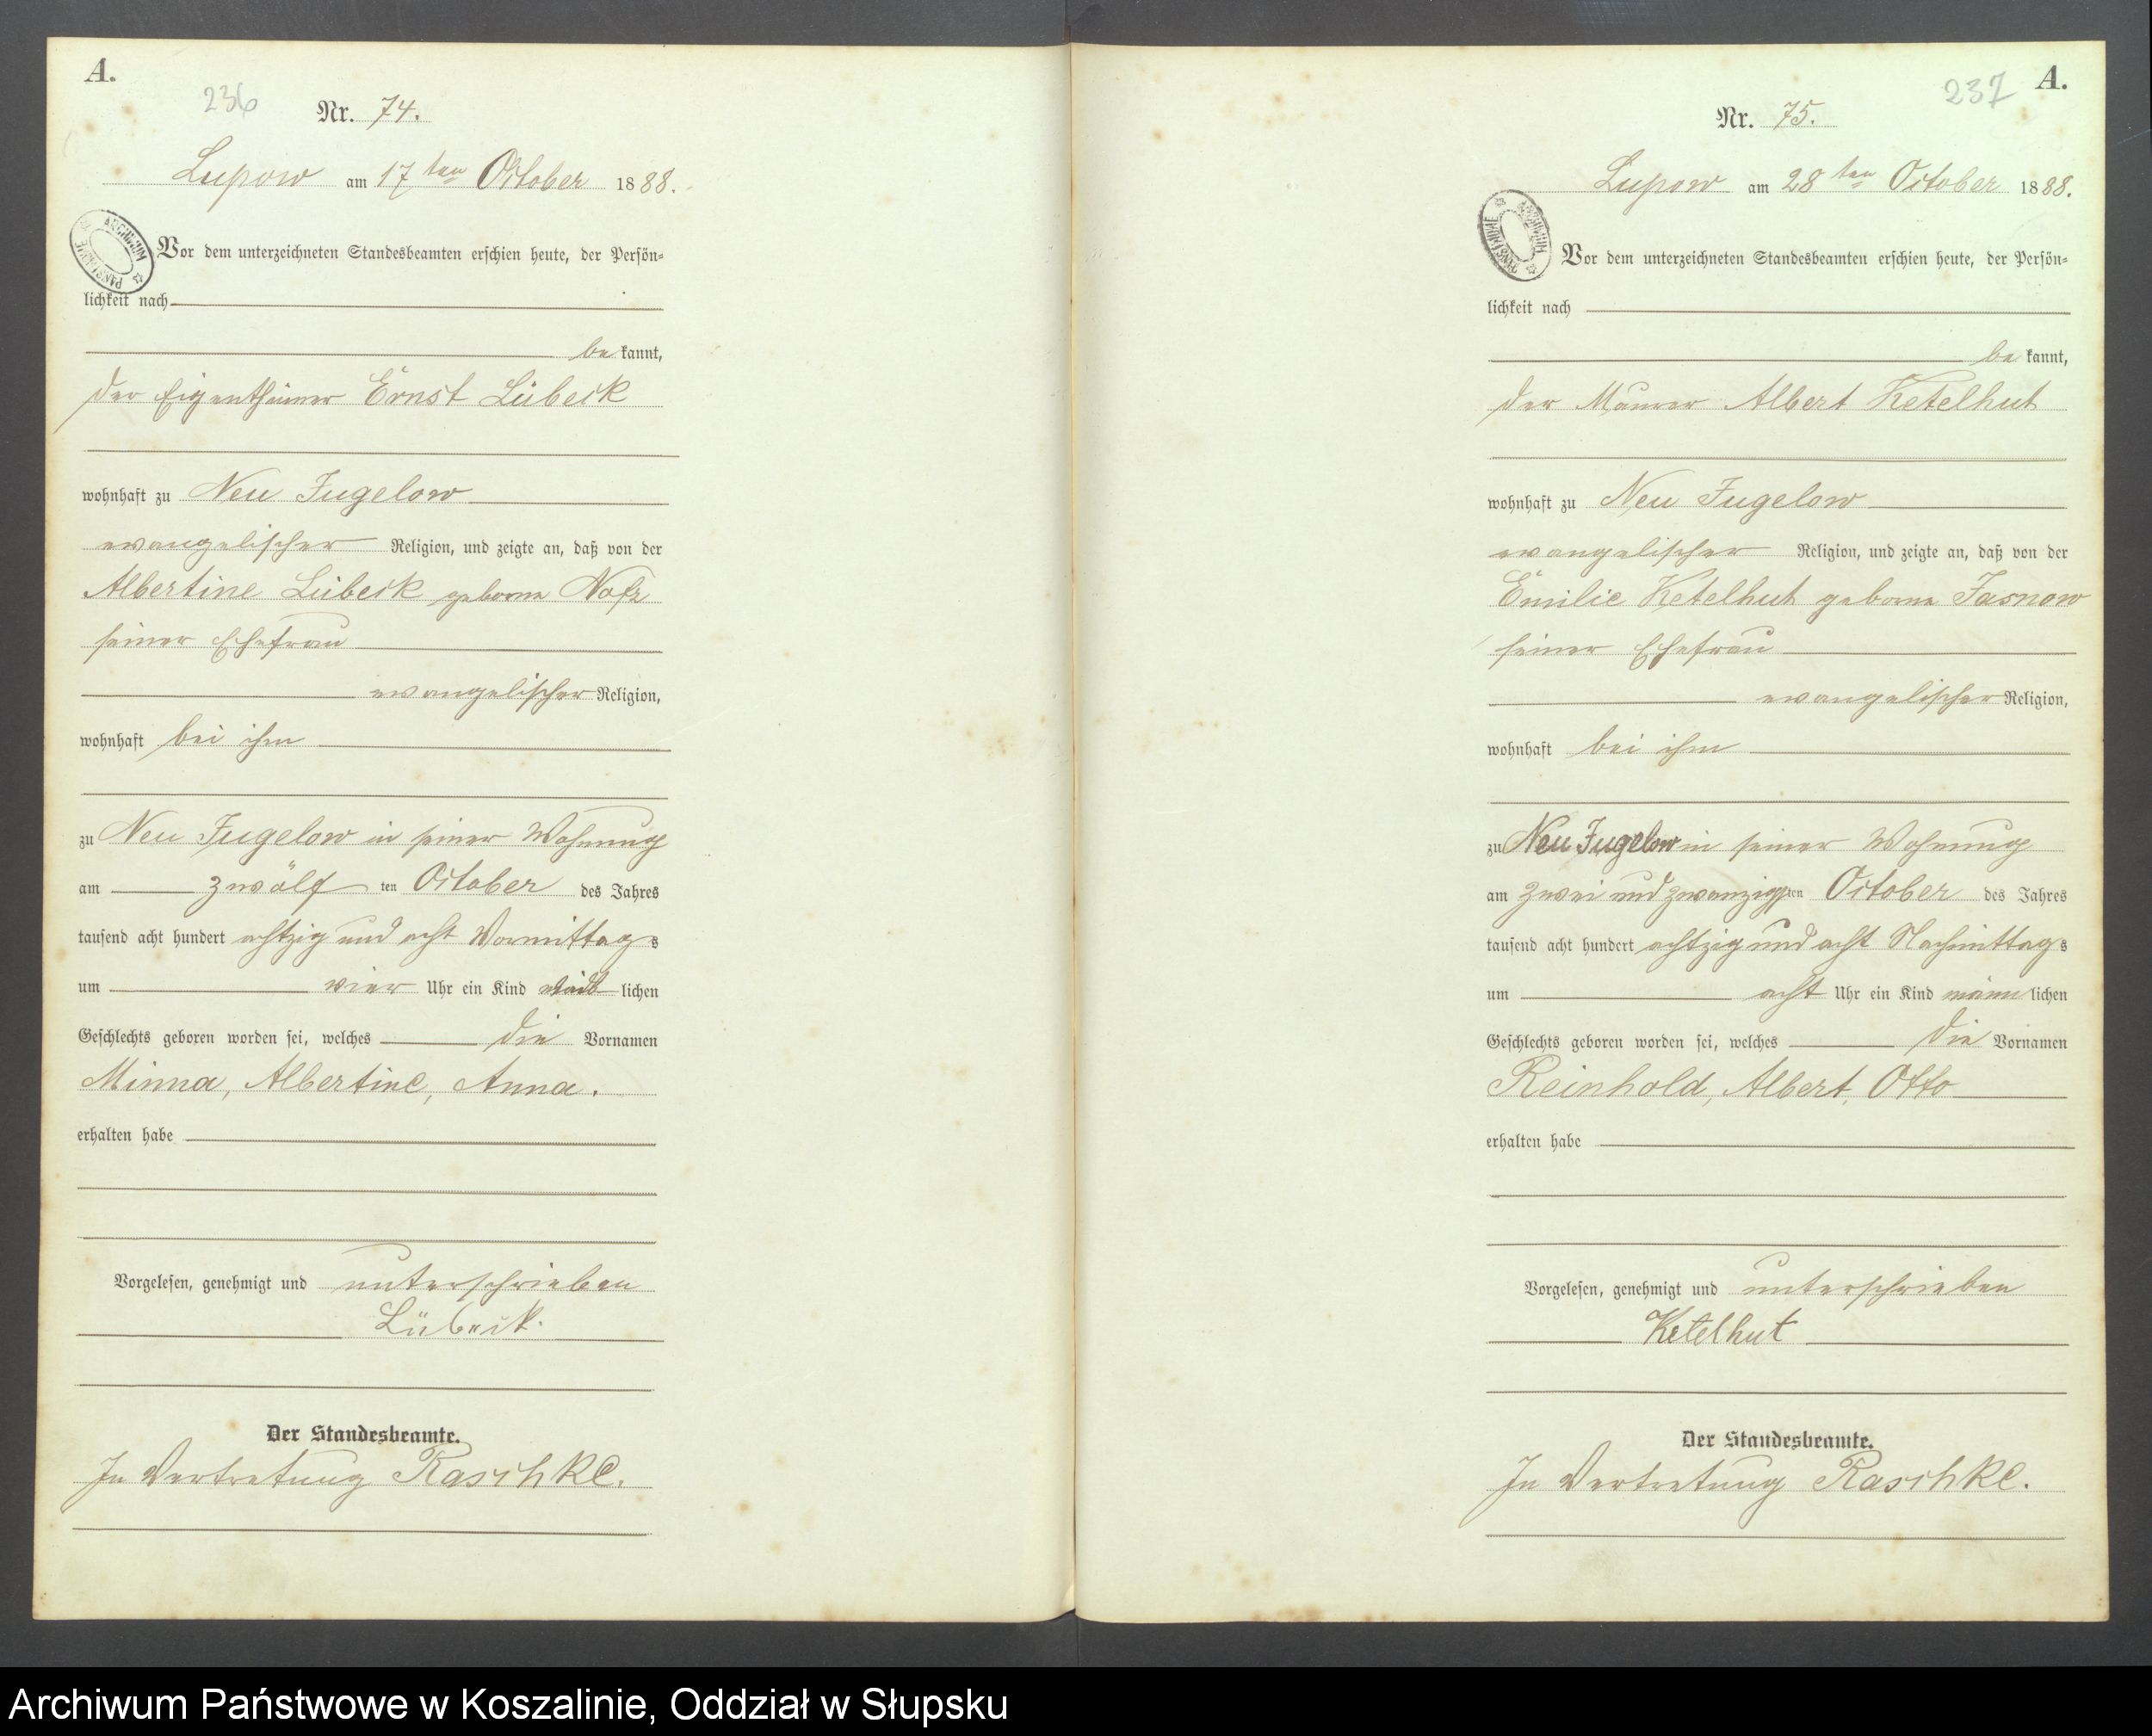 A.
236
Nr. 74.
Lupow am 17ten October 1888.
ARCHIWUM PAŃSTWOWE
Vor dem unterzeichneten Standesbeamten erschien heute, der Persön-
lichkeit nach
be kannt,
der Eigenthümer Ernst Lübeck
wohnhaft zu Neu Jugelow
evangelischer Religion, und zeigte an, daß von der
Albertine Lübeck geborne
seiner Ehefrau
evangelischer Religion,
wohnhaft bei ihm
zu Neu Jugelow in seiner Wohnung
am zwölf ten October des Jahres
tausend acht hundert achtzig und acht Vormittags
um vier Uhr ein Kind weib lichen
Geschlechts geboren worden sei, welches die Vornamen
Minna, Albertine, Anna.
erhalten habe
Vorgelesen, genehmigt und unterschrieben
Lübeck.
Der Standesbeamte.
In Vertretung Raschke.
237
A.
Nr. 75.
Lupow am 28ten October 1888.
ARCHIWUM PAŃSTWOWE
Vor dem unterzeichneten Standesbeamten erschien heute, der Persön-
lichkeit nach
be kannt,
der Maurer Albert Ketelhut
wohnhaft zu Neu Jugelow
evangelischer Religion, und zeigte an, daß von der
Emilie Ketelhut geborne Jasnow
seiner Ehefrau
evangelischer Religion,
wohnhaft bei ihm
zu Neu Jugelow in seiner Wohnung
am zwei und zwanzigsten October des Jahres
tausend acht hundert achtzig und acht Nachmittags
um acht Uhr ein Kind männ lichen
Geschlechts geboren worden sei, welches die Vornamen
Reinhold, Albert, Otto
erhalten habe
Vorgelesen, genehmigt und unterschrieben
Ketelhut
Der Standesbeamte.
In Vertretung Raschke.
Archiwum Państwowe w Koszalinie, Oddział w Słupsku